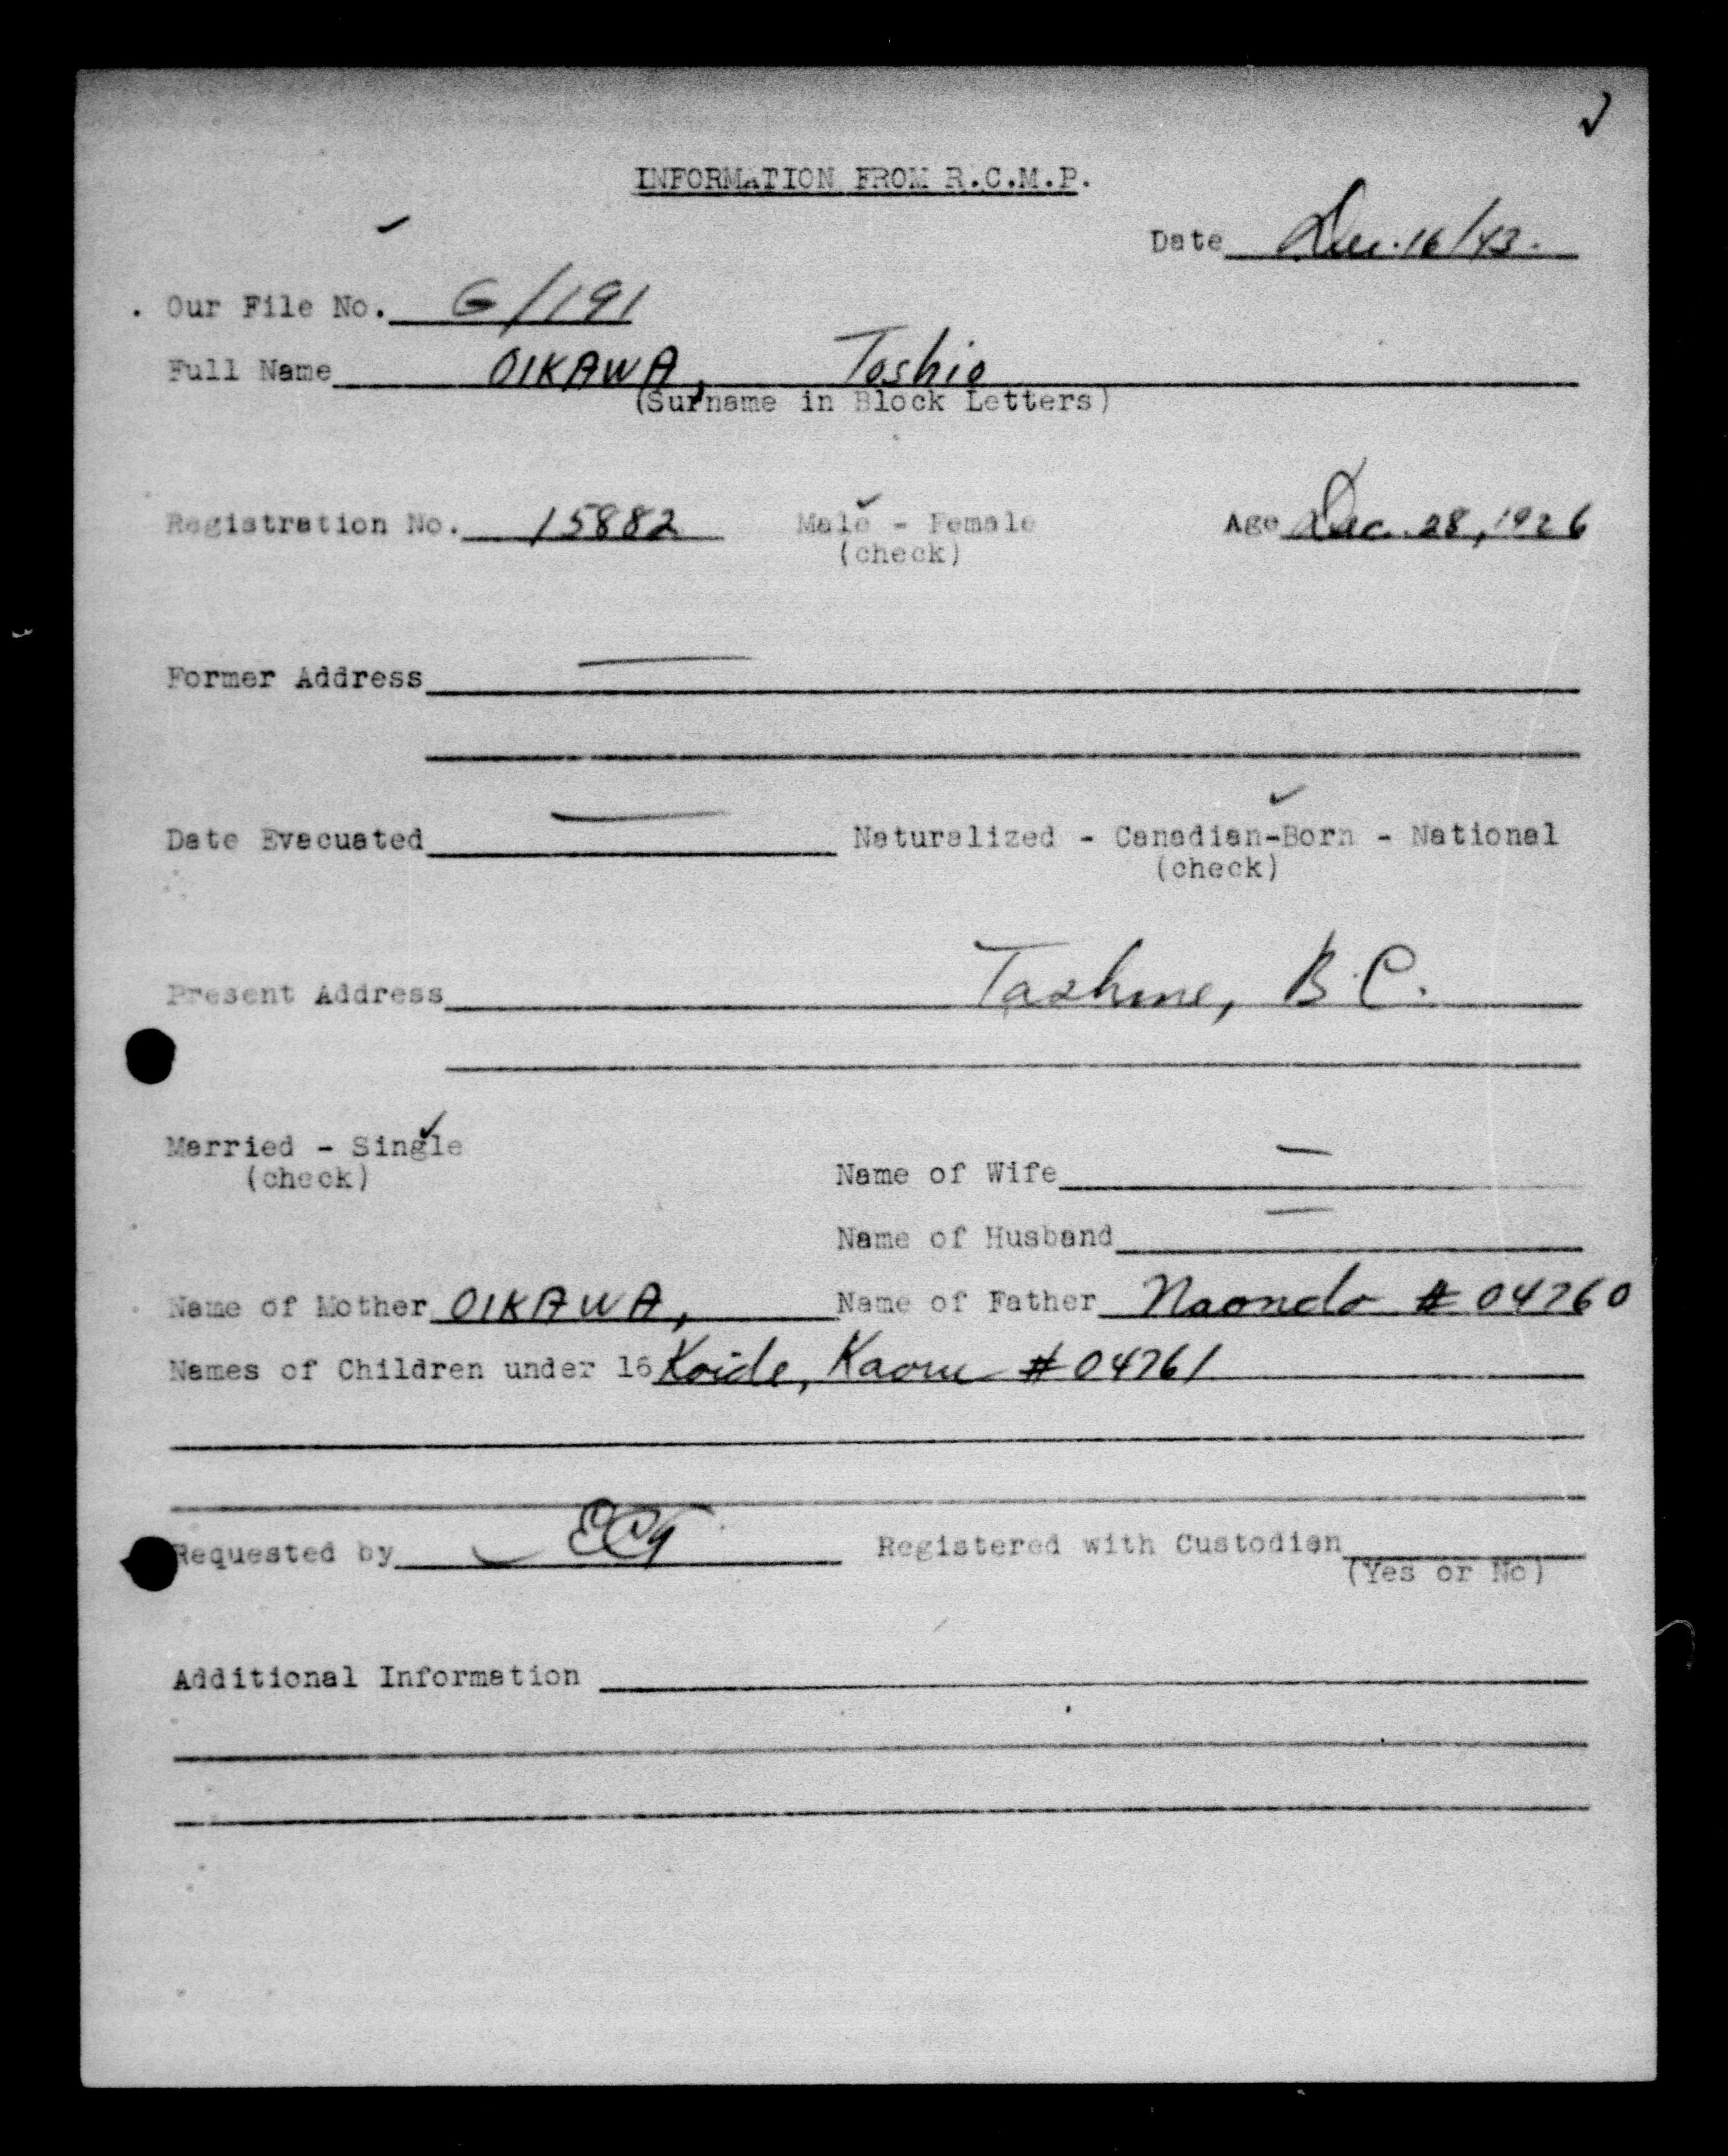 INFORMATION FROM R.C.M.P.
Date Dec. 16/43.
Our File No. G/191
Full Name OIKAWA, Toshio
(Surname in Block Letters)
Registration No. 15882 Male ✓ - Female Age Dec. 28, 1926
(check)
Former Address —
Date Evacuated — Naturalized - Canadian-Born ✓ - National
(check)
Present Address Tashme, B.C.
Married - Single ✓
(check)
Name of Wife —
Name of Husband —
Name of Mother OIKAWA, Name of Father Naondo # 04760
Names of Children under 16 Koide, Kaoru # 04761
Requested by Registered with Custodian
(Yes or No)
Additional Information